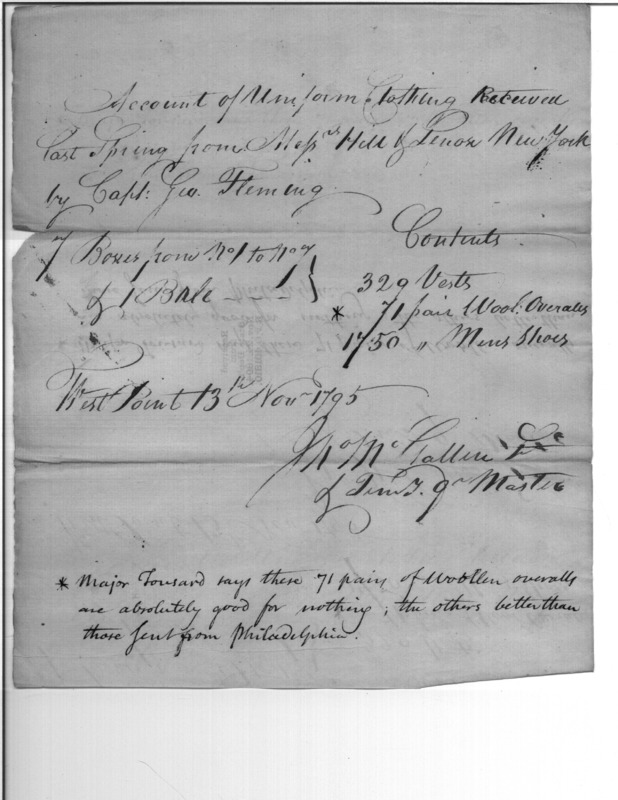 Account of Uniform Clothing Received
last Spring from Messrs Hill & Lenox New York
by Capt: Geo. Fleming.
Contents
7 Boxes from No 1 to No 7
& 1 Bale - 1 -
329 Vests
* 71 pair Wool: Overalls
1750 " Mens Shoes
West Point 13th Novr 1795
Jno McGallin Lt
& Temy. Qr Master
* Major Tousard says these 71 pairs of Woollen overalls
are absolutely good for nothing; the others better than
those sent from Philadelphia.